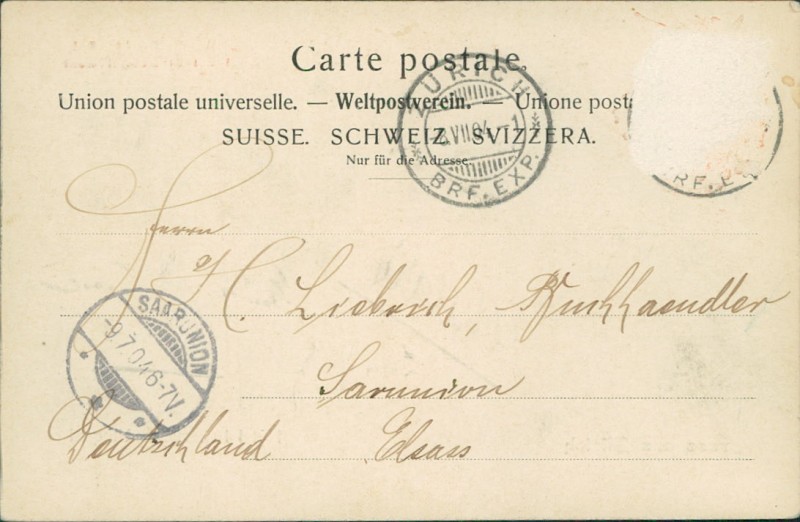 Carte postale.
Union postale universelle. — Weltpostverein. — Unione post
SUISSE. SCHWEIZ. SVIZZERA.
Nur für die Adresse.
ZÜRICH
VII.04
1
BRF. EXP.
RF. E
Herrn
H. Liebrich, Buchhaendler
SAARUNION
-9.7.04.6-7V.
Sarunion
Deutschland Elsass